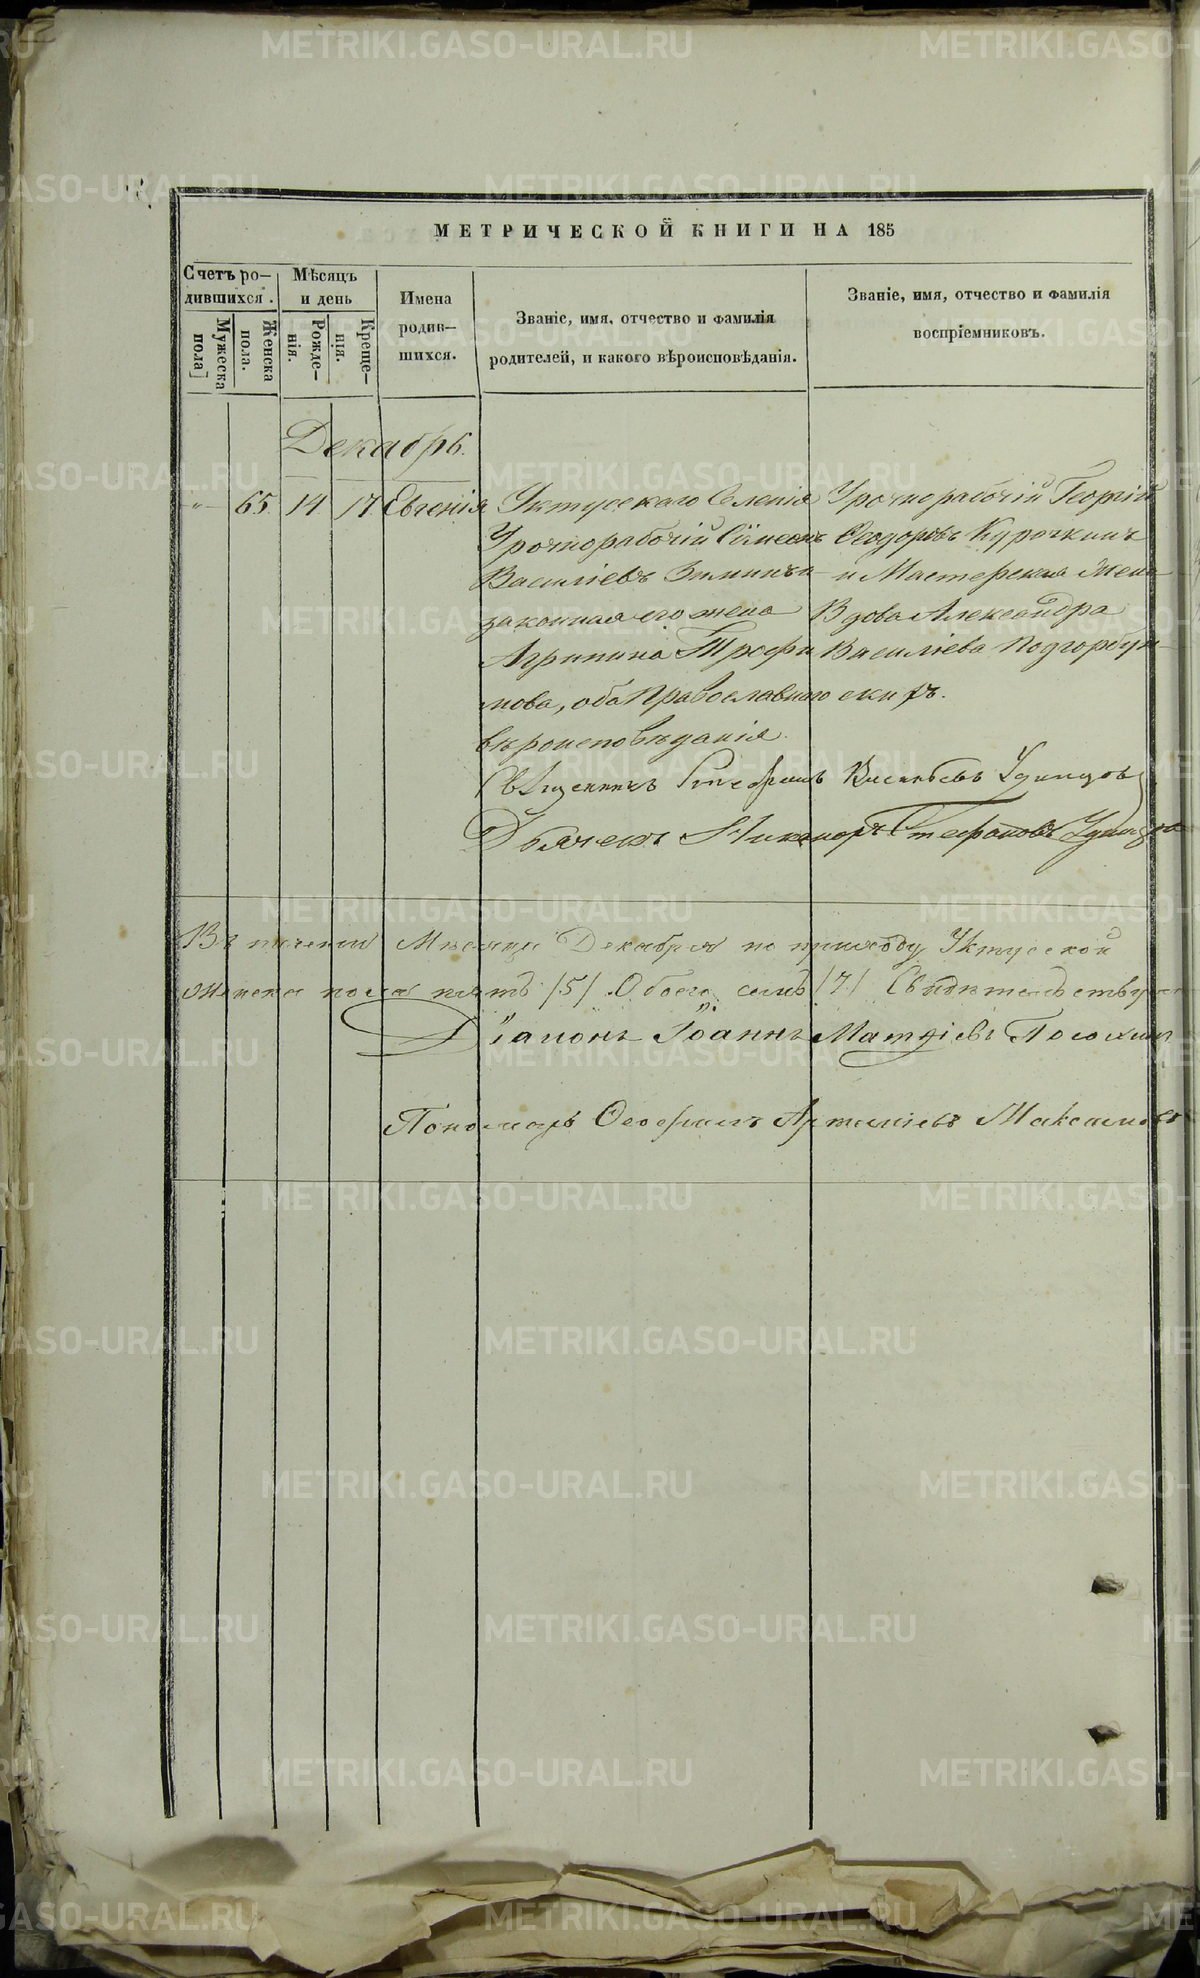 МЕТРИЧЕСКОЙ КНИГИ НА 185
Счетъ ро-
дившихся.
Мужеска
пола
Женска
пола.
Мѣсяцъ
и день
Рожде-
нія.
Креще-
нія.
Имена
родив-
шихся.
Званіе, имя, отчество и фамилія
родителей, и какого вѣроисповѣданія.
Званіе, имя, отчество и фамилія
воспріемниковъ.
Декабрь.
„ 65 14 17 Евгенія
Уктусскаго Селенія
Урочнорабочій Симеонъ
Василіевъ
законная его жена
Агрипина Трофи
мова, оба Православнаго
вѣроисповѣданія.
Урочнорабочій Георгій
Ѳеодоровъ Курочкинъ
и Мастерская жена
Вдова Александра
Василіева Подгорбун
скихъ.
Священникъ Стефанъ Васильевъ Удинцов
Дьячекъ Никаноръ Стефановъ Удинцовъ
Въ теченіи Мѣсяца Декабря по приходу Уктусской
женска пола пять /5/ Обоего семь /7/ Свидѣтельствуют
Діаконъ Іоаннъ Матѳіевъ
Пономарь Ѳеофанъ Артеміевъ Максимовъ
METRIKI.GASO-URAL.RU